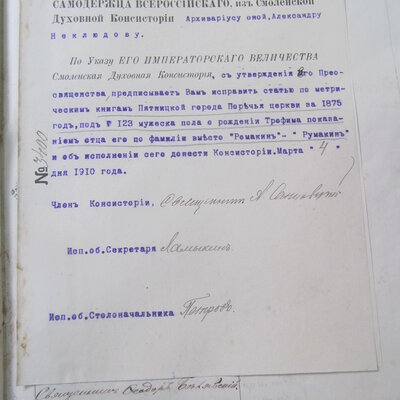 САМОДЕРЖЦА ВСЕРОССІЙСКАГО, изъ Смоленской
Духовной Консисторіи Архиваріусу оной, Александру
Неклюдову.
По Указу ЕГО ИМПЕРАТОРСКАГО ВЕЛИЧЕСТВА
Смоленская Духовная Консисторія, съ утвержденія Его Прео-
священства, предписываетъ Вамъ исправить статью по метри-
ческимъ книгамъ Пятницкой города Порѣчья церкви за 1875
годъ, подъ № 123 мужеска пола о рожденіи Трефима показа-
ніемъ отца его по фамиліи вмѣсто "Ремакинъ"- " Румакинъ"
и объ исполненіи сего донести Консисторіи. Марта " 4 "
дня 1910 года.
№
Членъ Консисторіи, Священникъ А.
Исп.об.Секретаря Ламыкинъ
Исп.об.Столоначальника Петровъ
Священникъ Ѳеодоръ